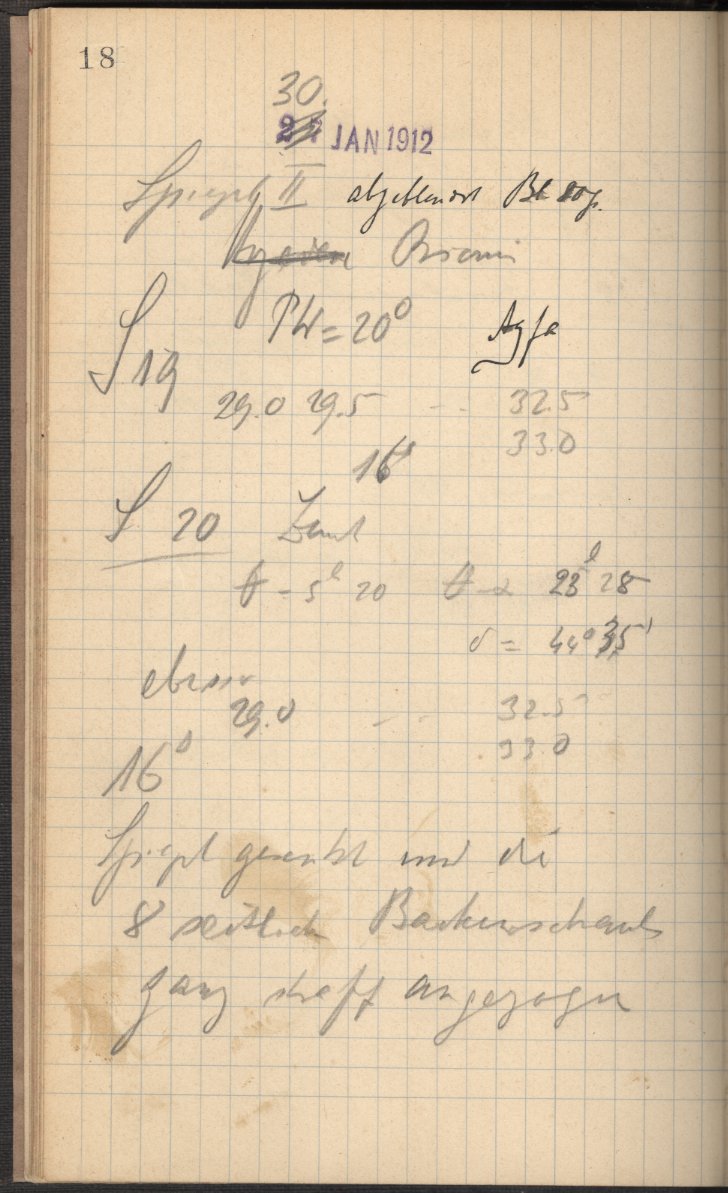 18
30.
JAN 1912
Spiegel II abgeblendet
PW = 20°
Agfa
S 19
29.0 29.5 -- 32.5
33.0
16
S 20
t = 5 20 t = 23 28
δ = 44° 35'
ebenso
29.0 -- 32.5
33.0
16
Spiegel gesenkt und die
8 seitlich Backenschraub
ganz straff angezogen